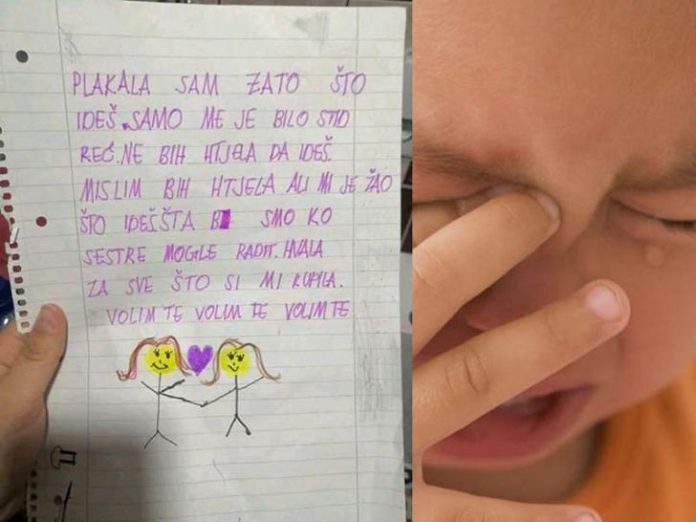 PLAKALA SAM ZATO ŠTO
IDEŠ. SAMO ME JE BILO STID
REĆ. NE BIH HTJELA DA IDEŠ.
MISLIM BIH HTJELA ALI MI JE ŽAO
ŠTO IDEŠ. ŠTA BI SMO KO
SESTRE MOGLE RADIT. HVALA
ZA SVE ŠTO SI MI KUPILA.
VOLIM TE VOLIM TE VOLIM TE